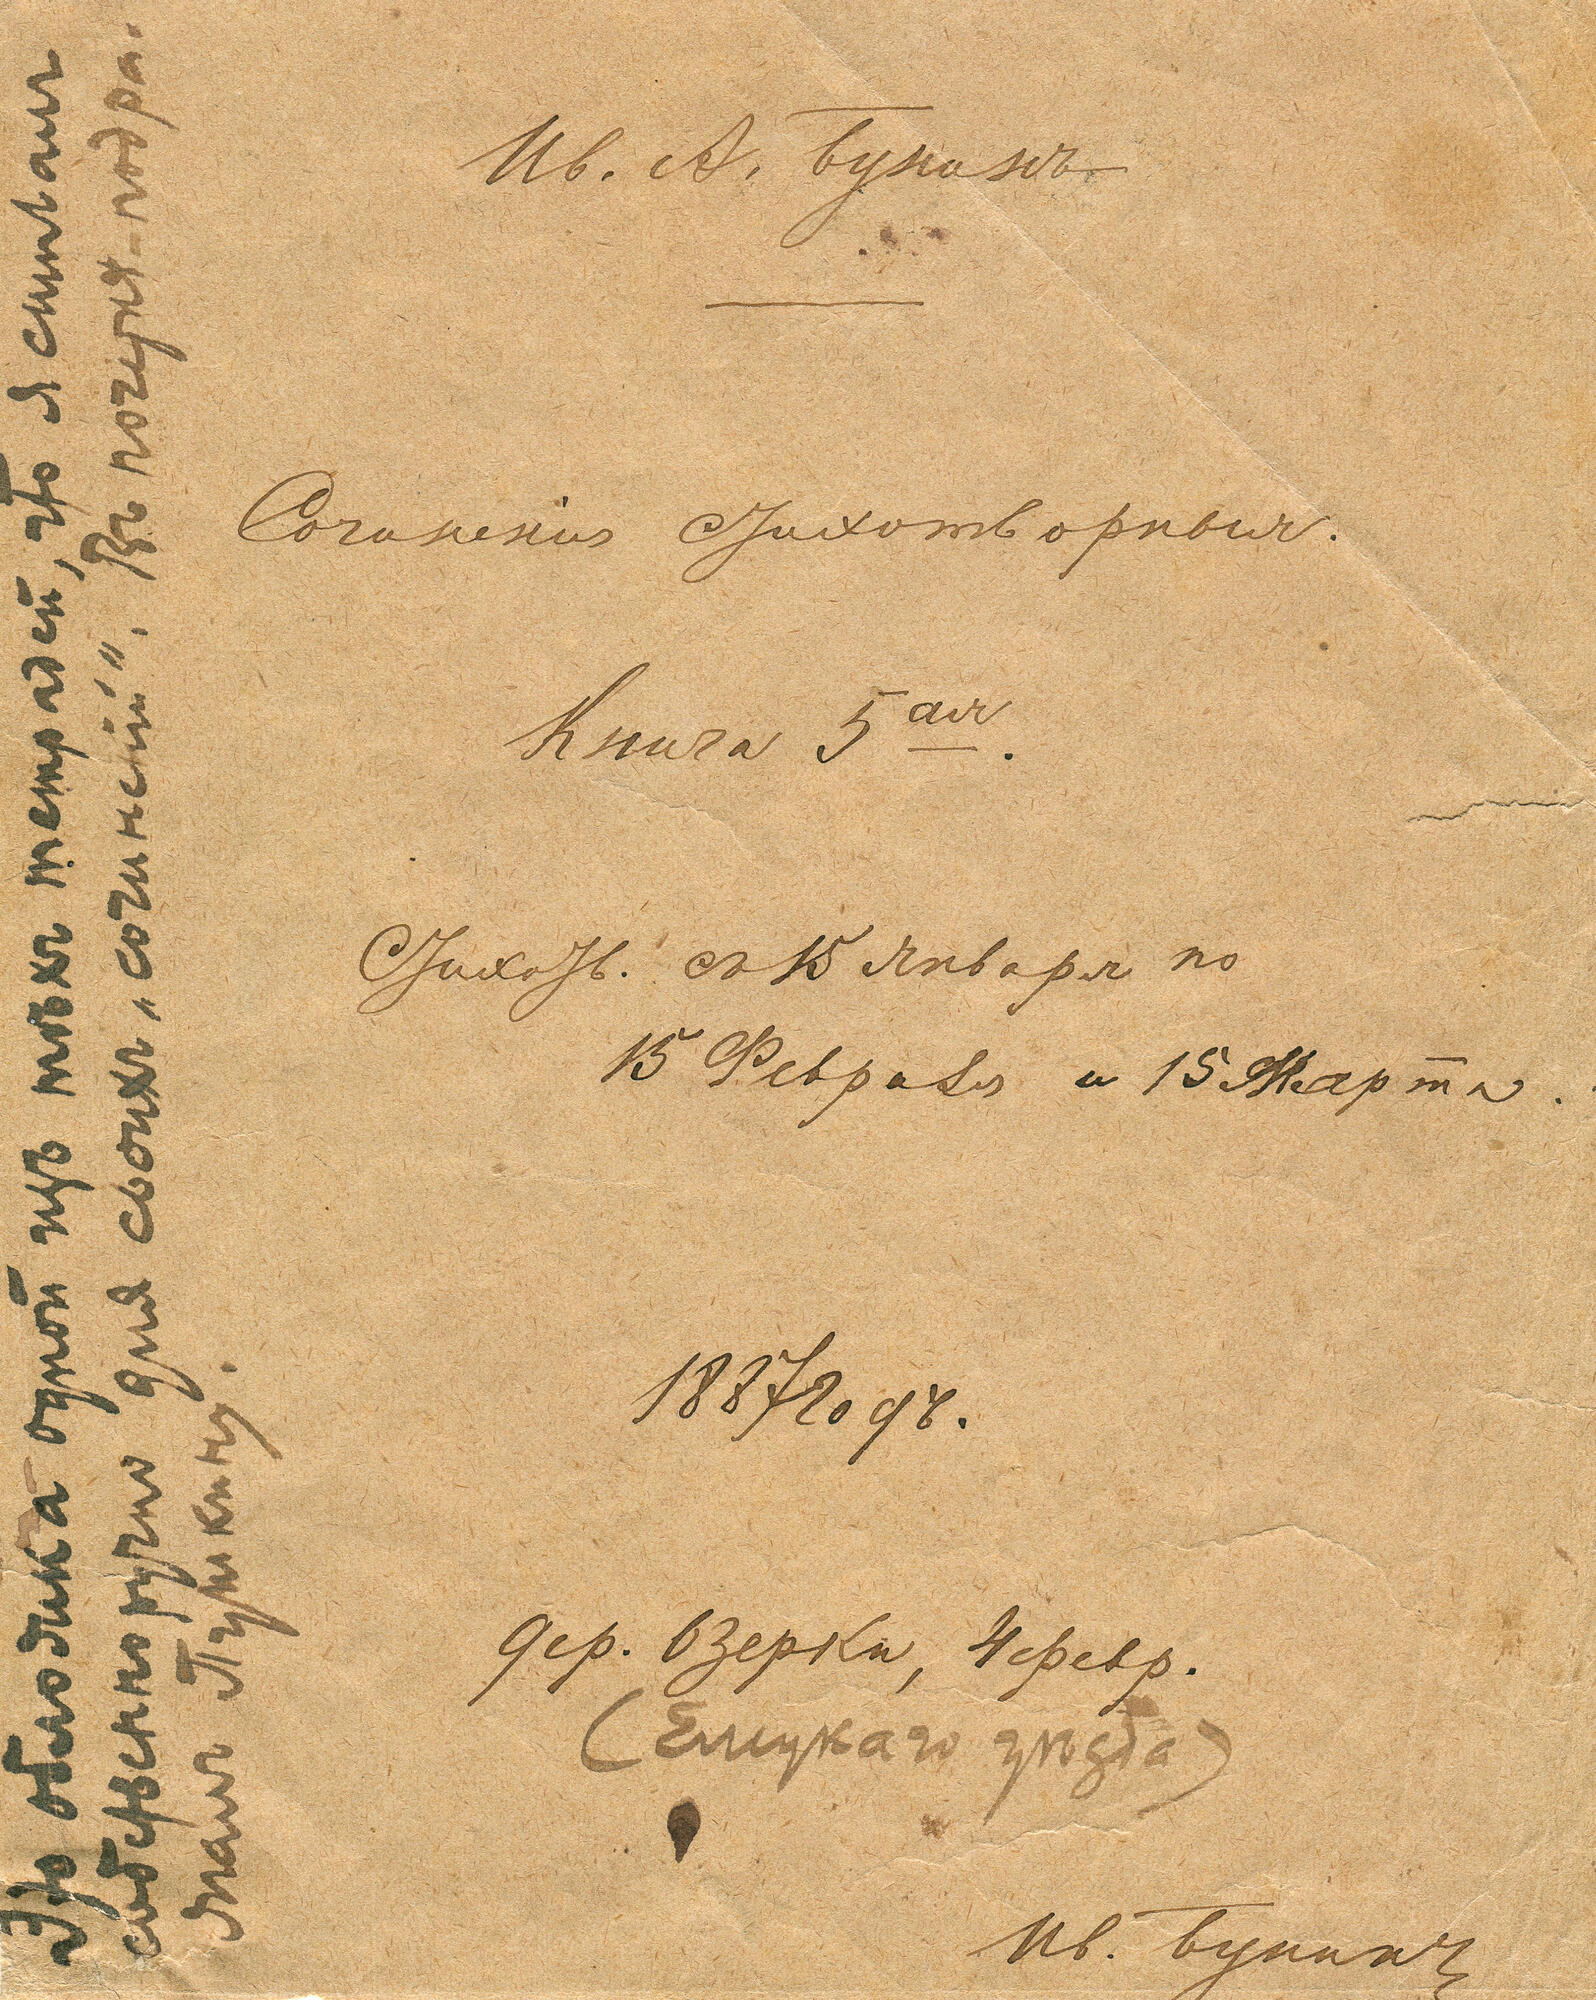 Ив. А. Бунинъ
Сочиненія стихотворныя.
Книга 5ая.
Стихотв. съ 15 Января по
15 Февраля и 15 Марта.
1887 годъ.
дер. Озерки, 4 февр.
(Елецкаго уѣзда)
Ив. Бунинъ
Это обложка одной изъ тѣхъ тетрадей, что я сшивалъ
собственноручно для своихъ „сочиненій". Въ почеркѣ подра-
жалъ Пушкину.